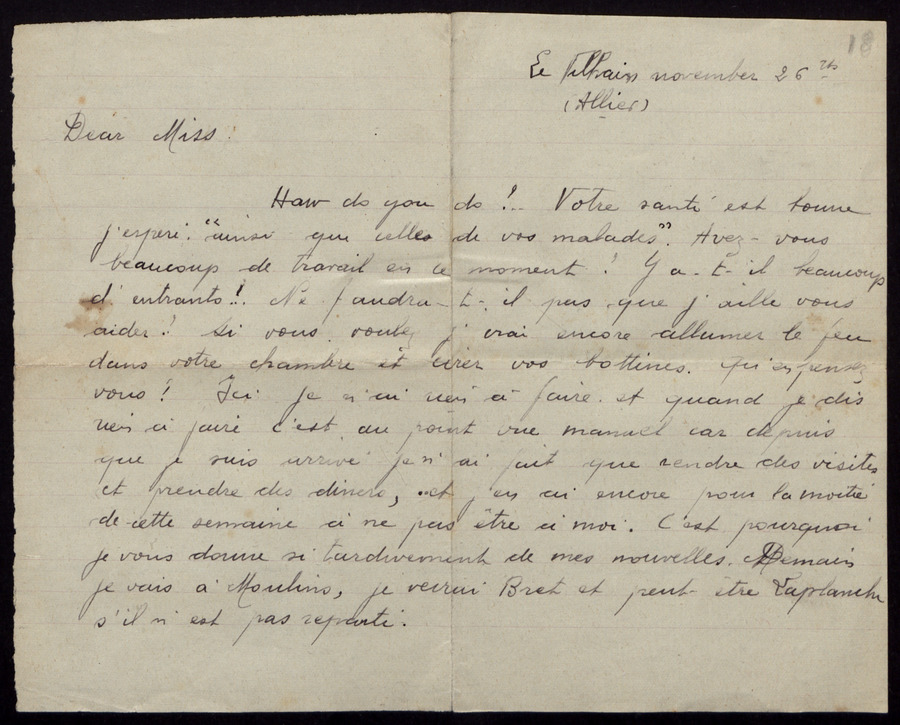 18
Le november 26 th
(Allier)
Dear Miss.
How do you do !.. Votre santé est bonne
j'espère. "ainsi que celles de vos malades". Avez-vous
beaucoup de travail en ce moment ! Y a-t-il beaucoup
d'entrants !. Ne faudra-t-il pas que j'aille vous
aider ! Si vous voulez j'irai encore allumer le feu
dans votre chambre et cirer vos bottines. Qu'en pensez
vous ! Ici je n'ai rien à faire. et quand je dis
rien à faire c'est au point vue manuel car depuis
que je suis arrivé je n'ai fait que rendre des visites
et prendre des diners, et j'en ai encore pour la moitié
de cette semaine à ne pas être à moi. C'est pourquoi
je vous donne si tardivement de mes nouvelles. Demain
je vais à Moulins, je verrai Bret et peut-être Laplanche
s'il n'est pas reparti.